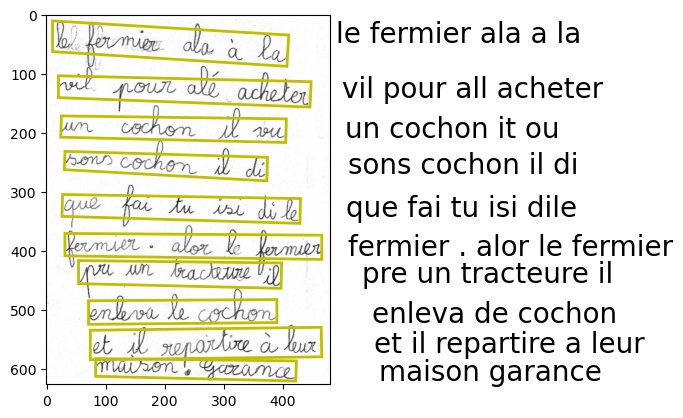 le fermier ala à la
vil pour alé acheter
un cochon il vu
sons cochon il di
que fai tu isi di le
fermier . alor le fermier
pri un tracteure il
enleva le cochon
et il repartire à leur
maison . Garance
le fermier ala a la
vil pour all acheter
un cochon it ou
sons cochon il di
que fai tu isi dile
fermier . alor le fermier
pre un tracteure il
enleva de cochon
et il repartire a leur
maison garance
0
100
200
300
400
500
600
0 100 200 300 400